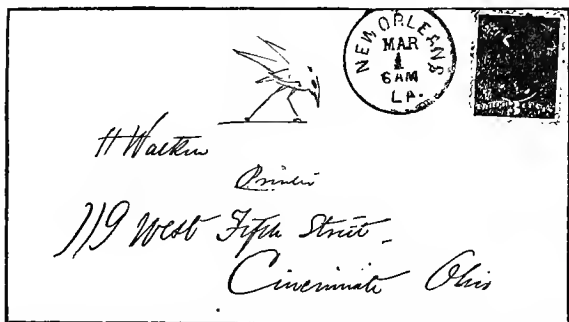 NEW ORLEANS
MAR
1
6 AM
LA.
H Watkin
Printer
119 West Fifth Street.
Cincinnati Ohio